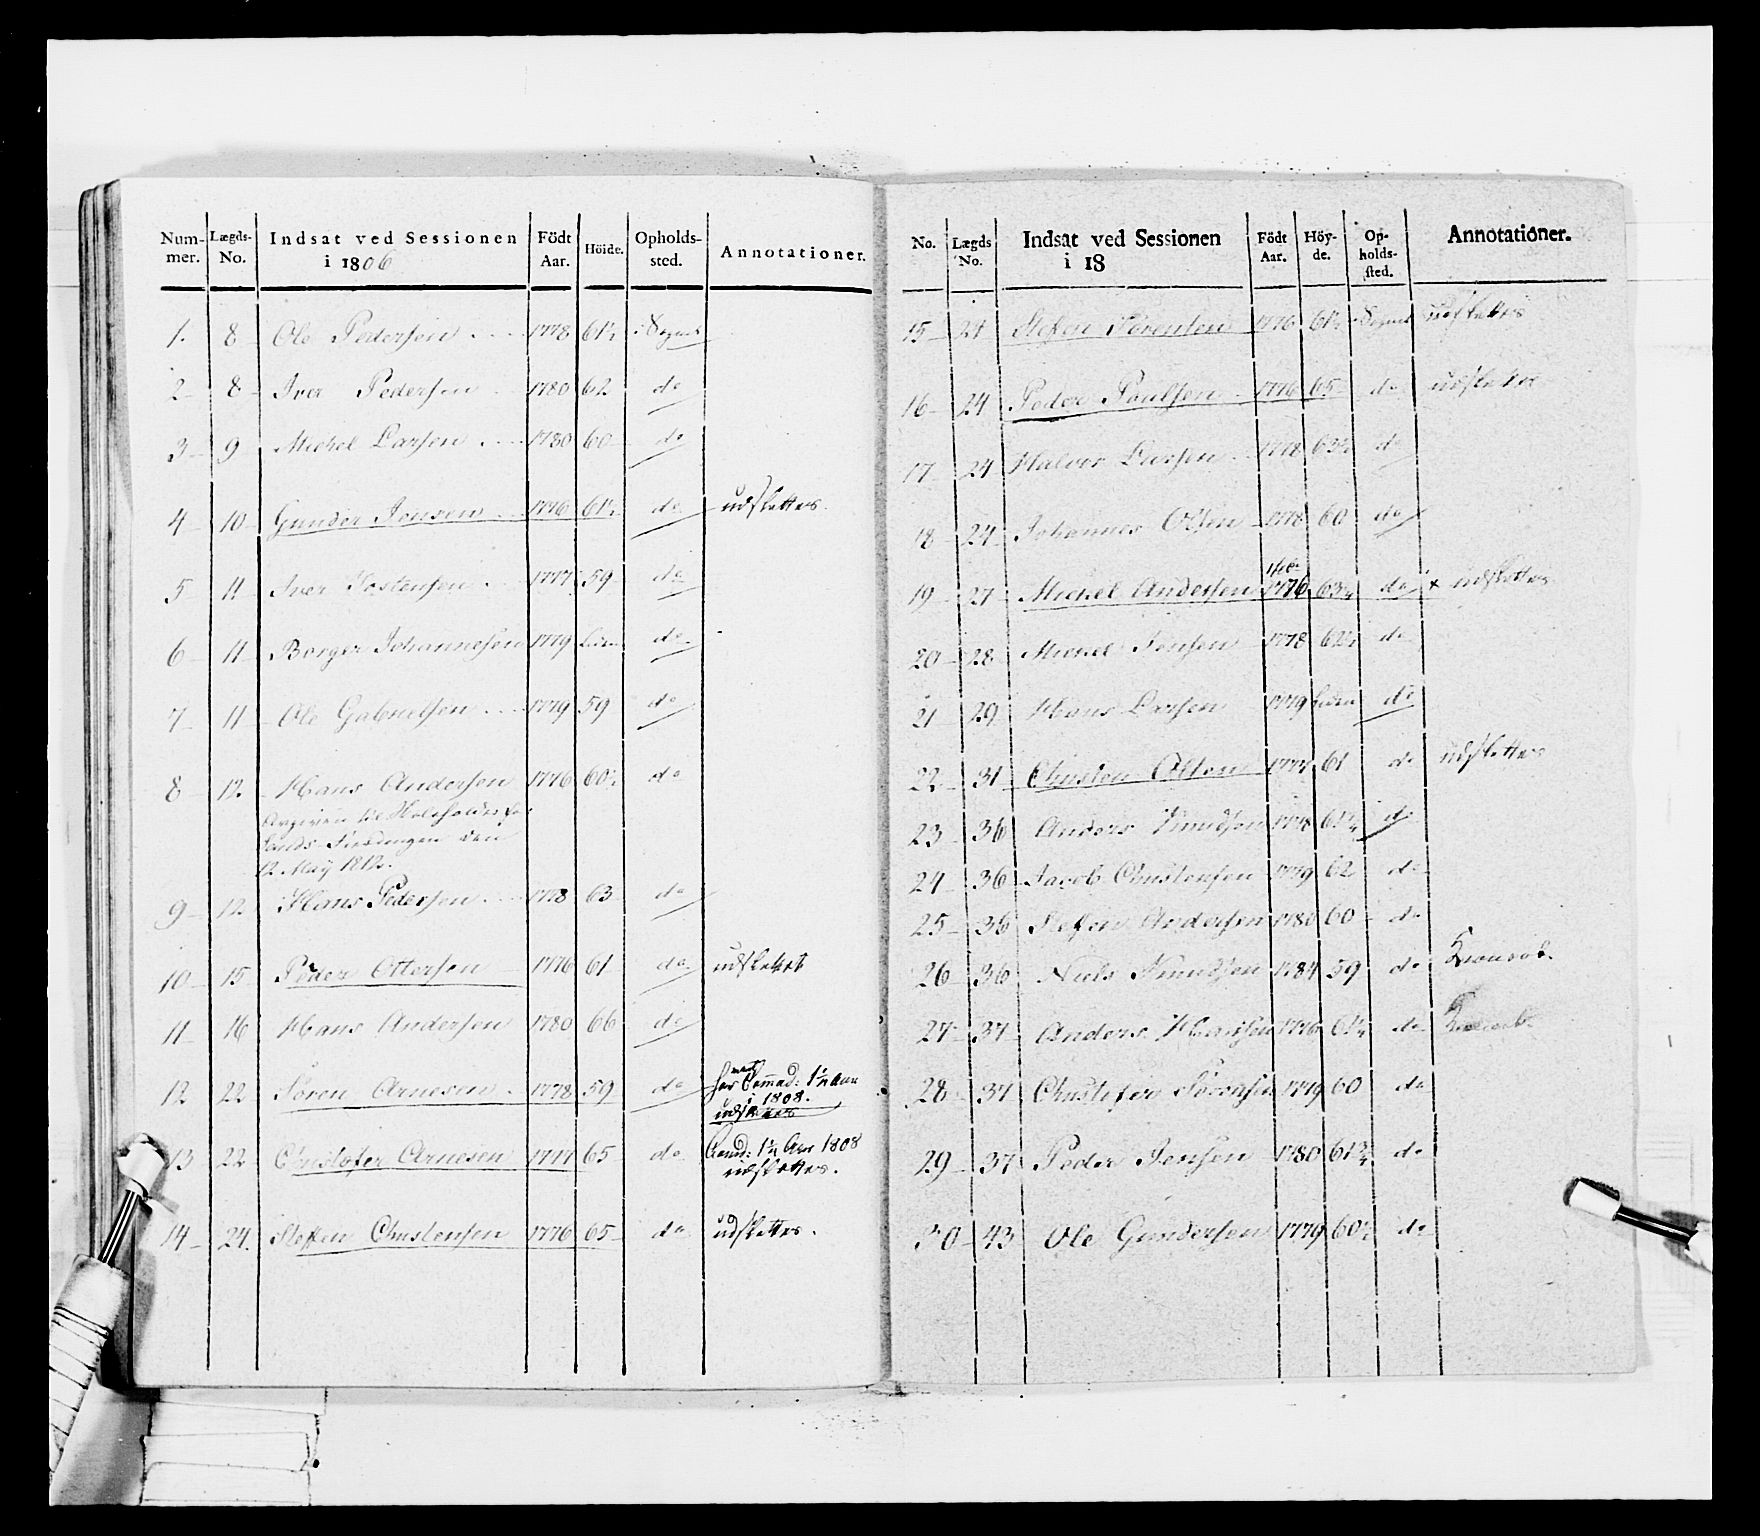 Num- Lægds- Indsat ved Sessionen Födt Höide. Opholds- Annotationer.
mer. No. i 1806 Aar. sted.
1. 8 Ole Pedersen 1778 61½ i Sognet
2 8 Iver Pedersen 1780 62 do
3 9 Michel Larsen 1780 60 do
4 10 Gunder Jensen 1776 61½ do udslettes.
5 11 Iver 1777 59 do
6 11 Borger Johannesen 1779 liden do
7 11 Ole Gabrielsen 1779 59 do
8 12 Hans Andersen 1776 60½ do
Angiven til
12 May 1812.
9 12 Hans Pedersen 1778 63 do
10 15 Peder Ottersen 1776 61 do udslettet
11 16 Hans Andersen 1780 66 do
12 22 Sören Arnesen 1778 59 do har Comad: 1½ Aar
i 1808.
udslettes
13 22 Christofer Arnesen 1777 65 do Comd: 1½ Aar 1808
udslettes.
14 24 Steffen Christensen 1776 65 do udslettes.
No. Lægds Indsat ved Sessionen Födt Höy- Op- Annotationer.
No. i 18 Aar. de. holds-
sted.
15 24 Stefen Sörensen 1776 61½ i Sognet udslettes
16 24 Peder Poulsen 1776 65 do udslettes
17 24 Halvor Larsen 1778 63½ do
18 24 Johannes Olsen 1778 60 do
19 27 Michel Andersen 1776 63¼ do x udslettes
20 28 Michel Jensen 1778 62½ do
21 29 Hans Larsen 1779 liden do
22 31 Christen Olsen 1777 61 do udslettes
23 36 Anders Knudsen 1778 61¼ do
24 36 Jacob Christensen 1779 62 do
25 36 Stefen Andersen 1780 60 do
26 36 Niels Knudsen 1784 59 do
27 37 Anders Hansen 1776 61¼ do
28 37 Christofer Sörensen 1779 60 do
29 37 Peder Jensen 1780 61¾ do
30 43 Ole Gundersen 1779 60½ do